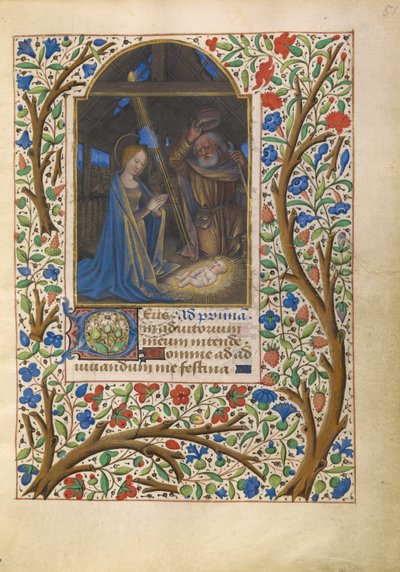 Deus Ad prima
in adiutorium
meum intende
Domine ad ad
iuuandum me festina